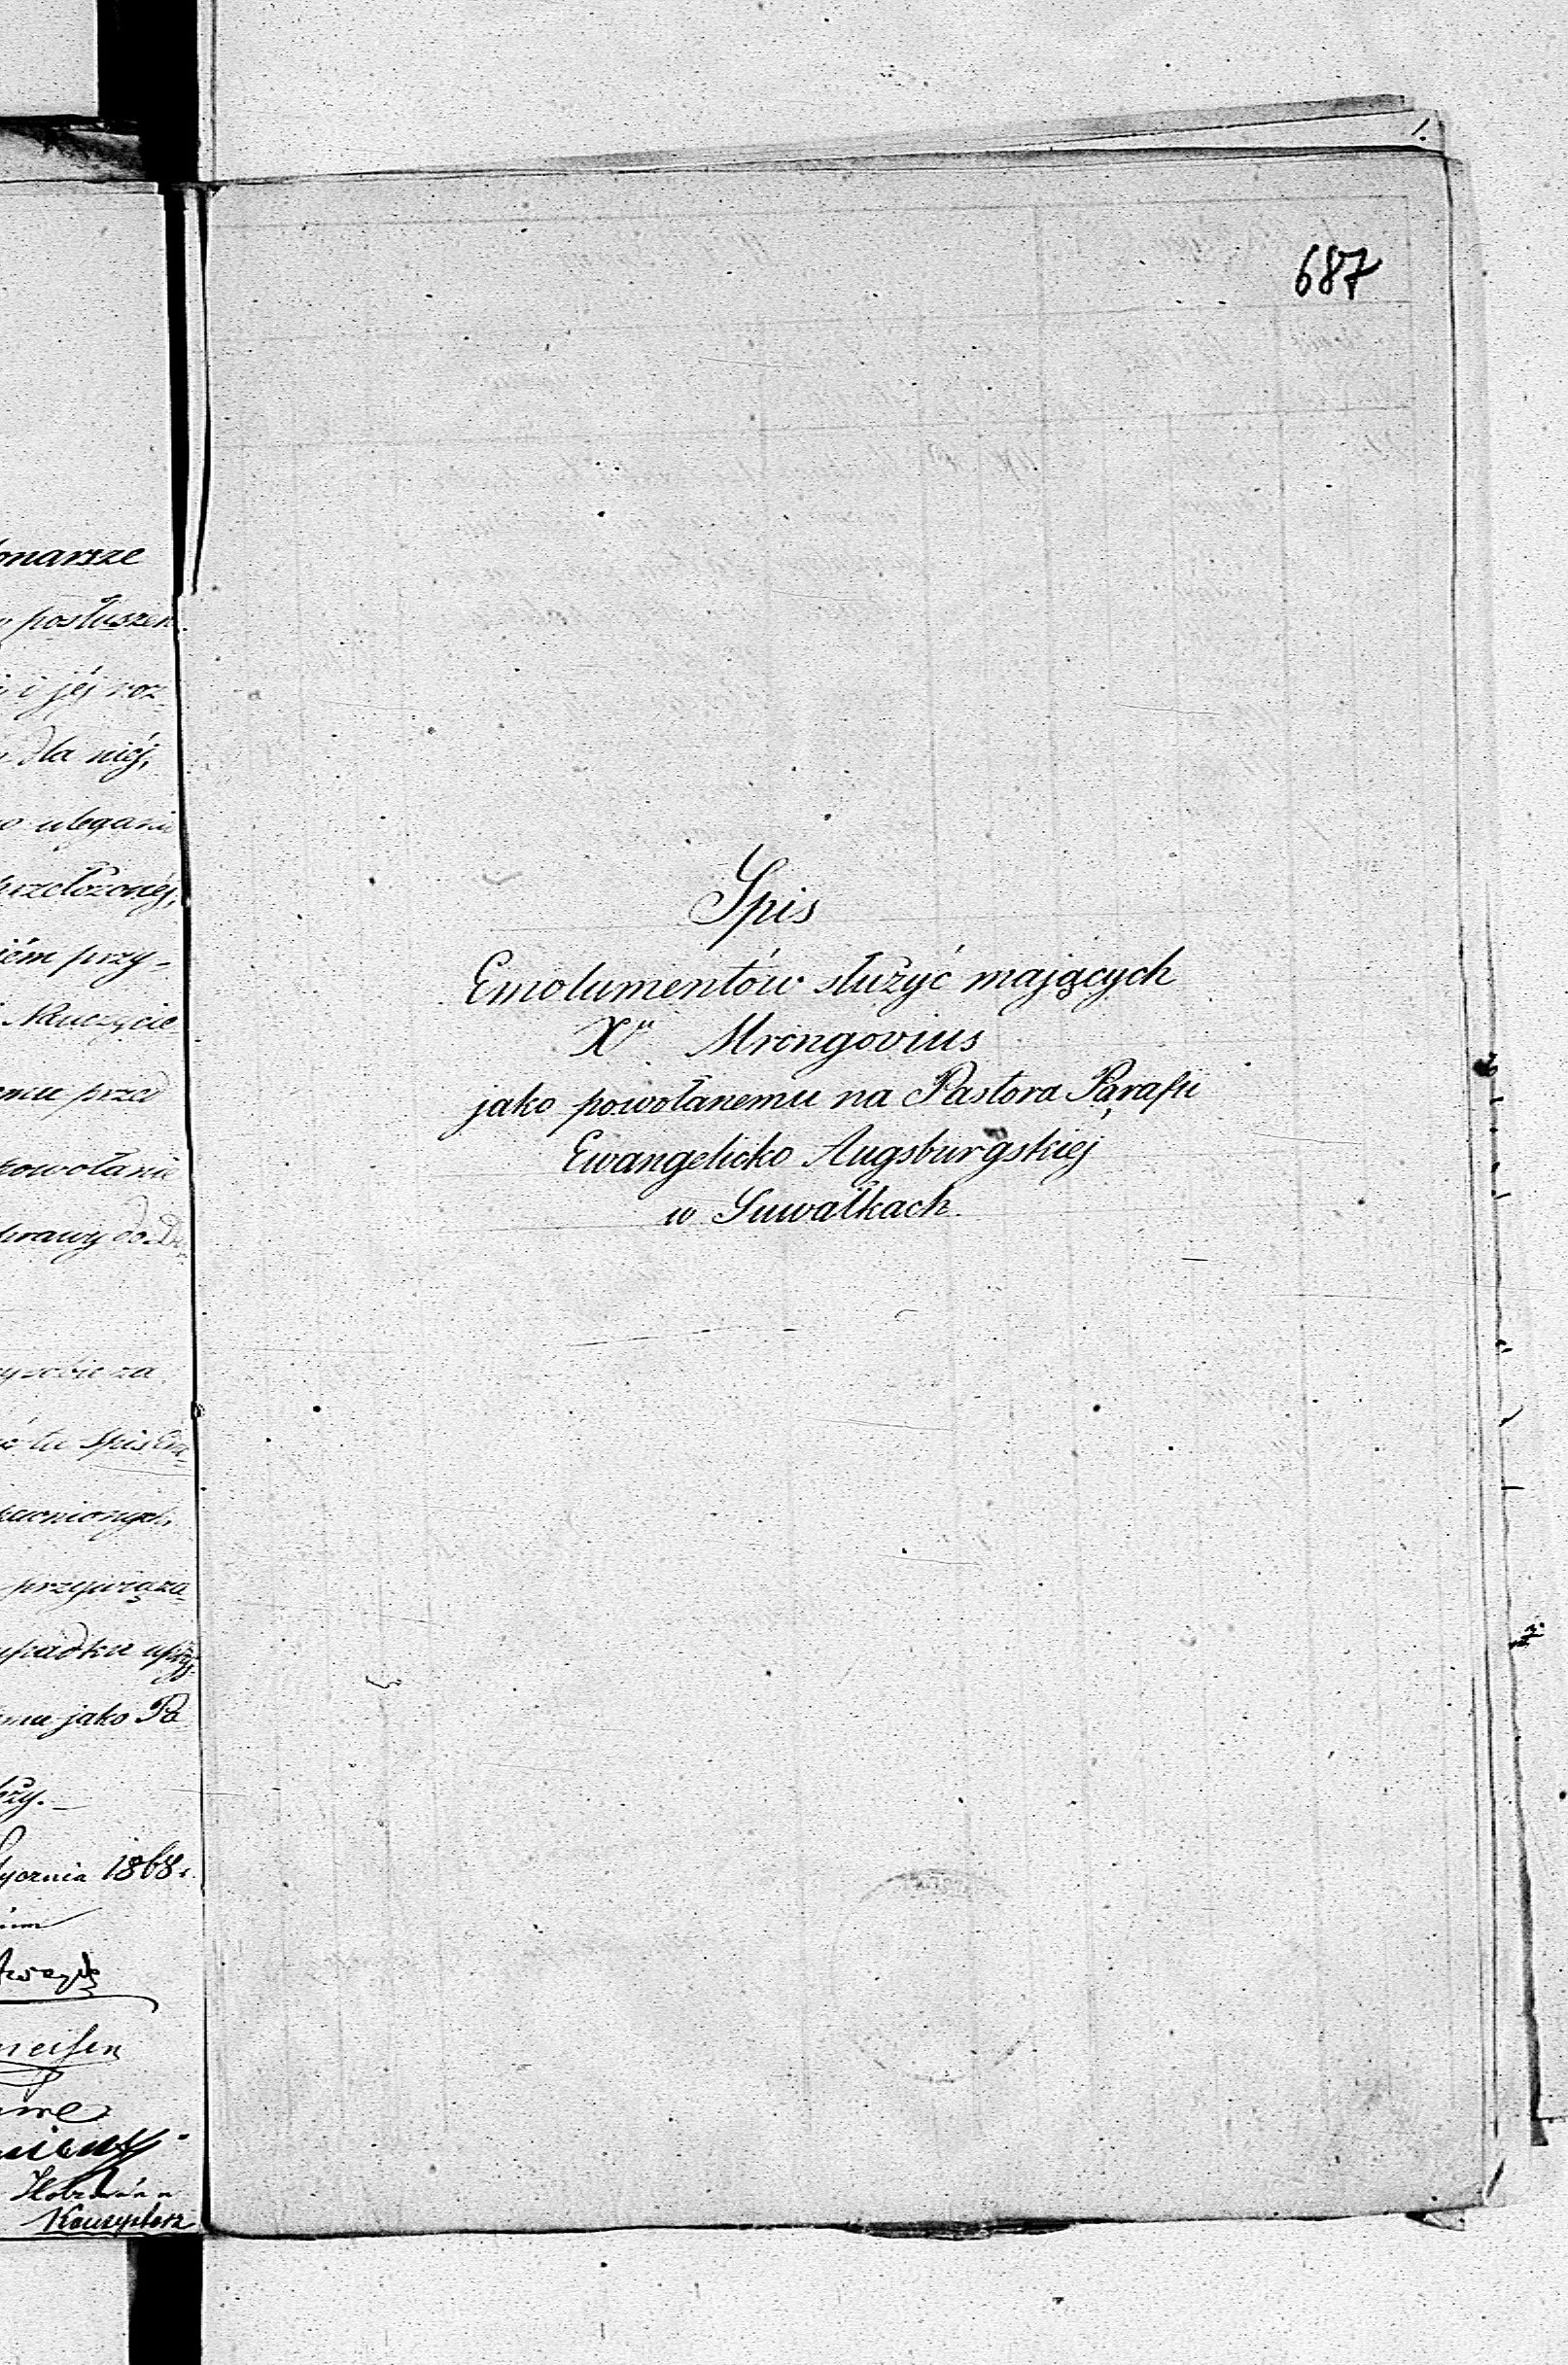 onarsze
posłuszeń
i jéj roz-
dla niéj,
uleganiu
rzełożonéj,
iém przy-
Kluczycie
emu przed
powołanie
prawy do
sobie za
tu Spis Em-
ewnionych,
przywiąza-
ypadku
emu jako Pa-
ży.
Stycznia 1868 r.
1.
687
Spis
Emolumentów służyć mających
Xu Mrongovius
jako powołanemu na Pastora Parafii
Ewangelicko Augsburgskiej
w Suwałkach.